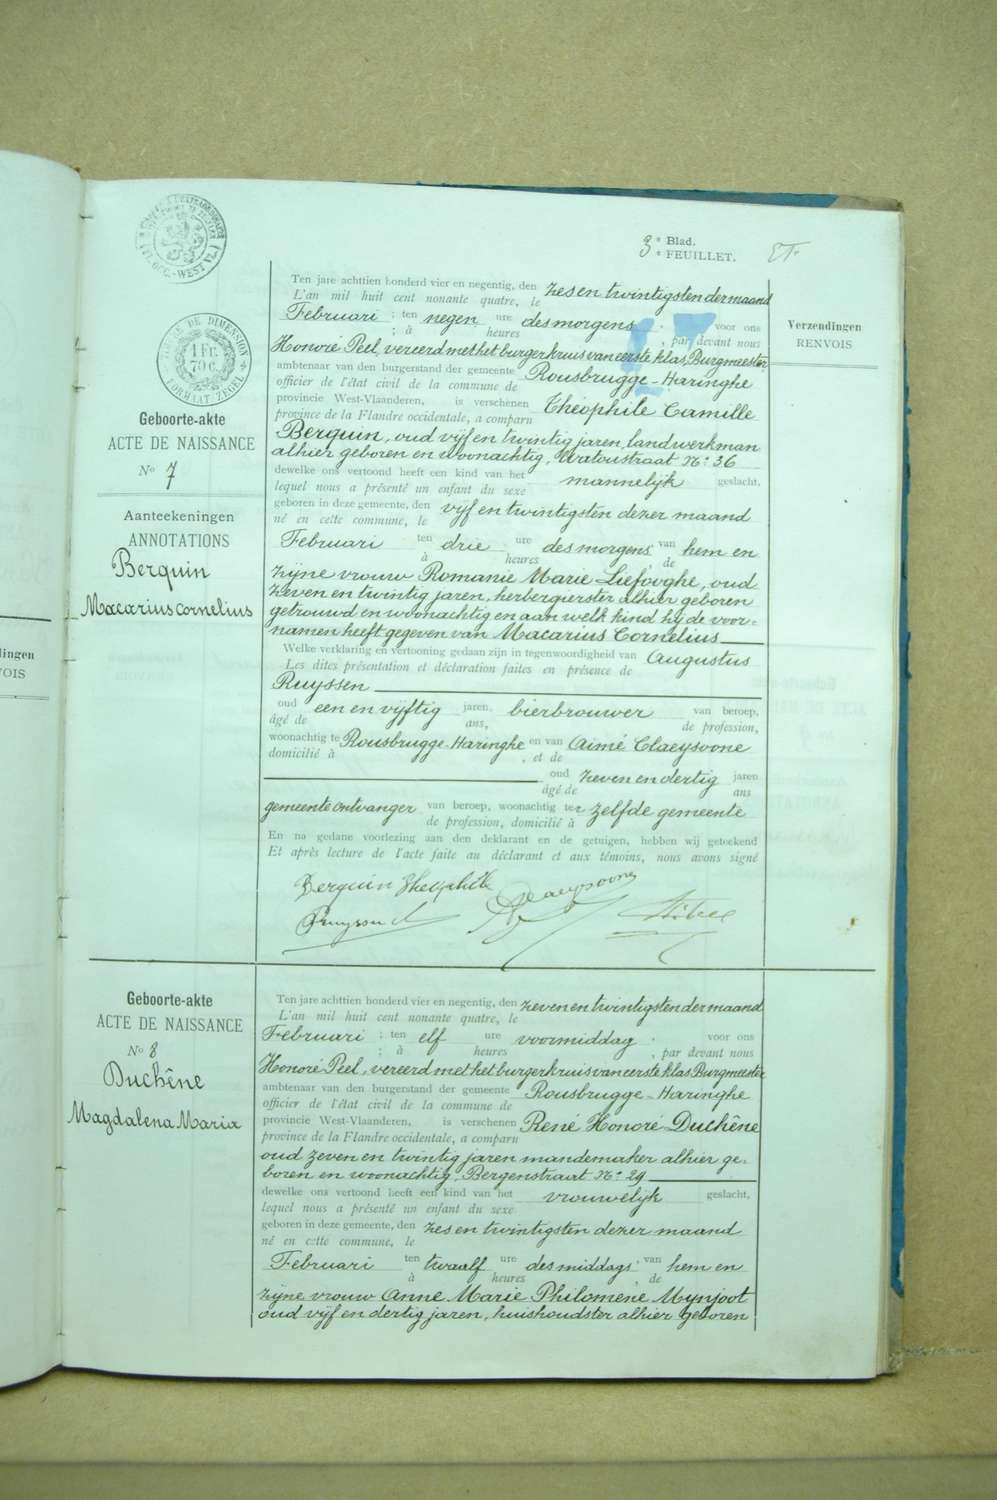 3e Blad.
e FEUILLET.
1 Fr.
70 c.
FORMAAT-ZEGEL
Geboorte-akte
ACTE DE NAISSANCE
No 7
Aanteekeningen
ANNOTATIONS
Berquin
Macarius Cornelius
Verzendingen
RENVOIS
Ten jare achttien honderd vier en negentig, den zes en twintigsten der maand
L'an mil huit cent nonante quatre, le
Februari ; ten negen ure des morgens ; voor ons
; à heures , par devant nous
Honoré Peel, vereerd met het burgerkruis van eerste klas, Burgmeester
ambtenaar van den burgerstand der gemeente Rousbrugge-Haringhe
officier de l'état civil de la commune de
provincie West-Vlaanderen, is verschenen Théophile Camille
province de la Flandre occidentale, a comparu
Berquin, oud vijf en twintig jaren, landwerkman
alhier geboren en woonachtig, Watoustraat No 36
dewelke ons vertoond heeft een kind van het mannelyk geslacht,
lequel nous a présenté un enfant du sexe
geboren in deze gemeente, den vijf en twintigsten dezer maand
né en cette commune, le
Februari ten drie ure des morgens van hem en
à heures de
zijne vrouw Romanie Marie Liefooghe, oud
zeven en twintig jaren, herbergierster alhier geboren
getrouwd en woonachtig en aan welk kind hij de voor-
namen heeft gegeven van Macarius Cornelius
Welke verklaring en vertooning gedaan zijn in tegenwoordigheid van Augustus
Les dites présentation et déclaration faites en présence de
Ruyssen
oud een en vijftig jaren, bierbrouwer van beroep,
âgé de ans, de profession,
woonachtig te Rousbrugge-Haringhe en van Aimé Claeysoone
domicilié à , et de
oud zeven en dertig jaren
âgé de ans
gemeente ontvanger van beroep, woonachtig ter zelfde gemeente
de profession, domicilié à
En na gedane voorlezing aan den deklarant en de getuigen, hebben wij geteekend
Et après lecture de l'acte faite au déclarant et aux témoins, nous avons signé
Berquin Theophile Claeysoone
Geboorte-akte
ACTE DE NAISSANCE
No 8
Duchêne
Magdalena Maria
Ten jare achttien honderd vier en negentig, den zeven en twintigsten der maand
L'an mil huit cent nonante quatre, le
Februari ; ten elf ure voormiddag ; voor ons
; à heures , par devant nous
Honoré Peel, vereerd met het burgerkruis van eerste klas Burgmeester
ambtenaar van den burgerstand der gemeente Rousbrugge-Haringhe
officier de l'état civil de la commune de
provincie West-Vlaanderen, is verschenen René Honoré Duchêne
province de la Flandre occidentale, a comparu
oud zeven en twintig jaren mandemaker alhier ge-
boren en woonachtig, Bergenstraat No 29
dewelke ons vertoond heeft een kind van het vrouwelyk geslacht,
lequel nous a présenté un enfant du sexe
geboren in deze gemeente, den zes en twintigsten dezer maand
né en cette commune, le
Februari ten twaalf ure des middags van hem en
à heures , de
zijne vrouw Anne Marie Philomène Mynjoot
oud vijf en dertig jaren, huishoudster alhier geboren